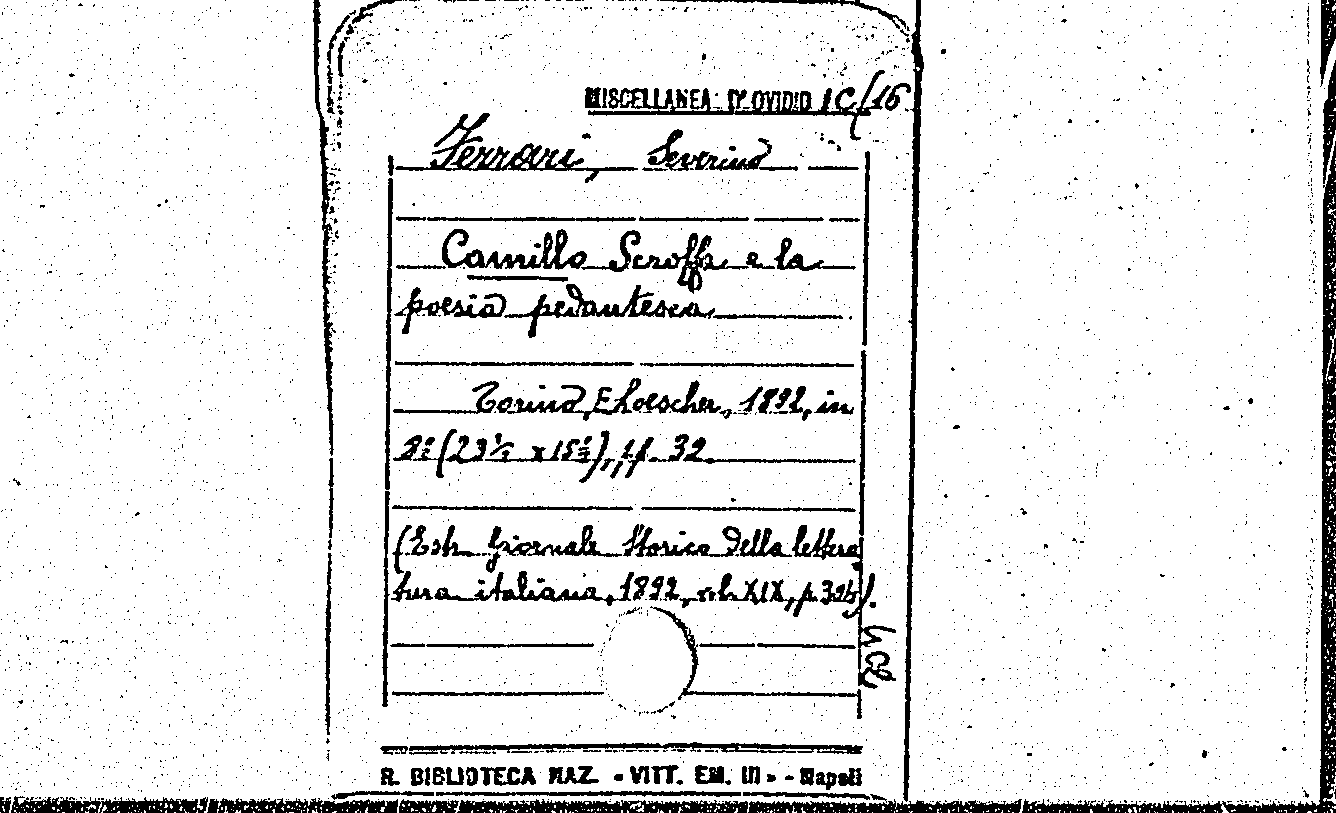 MISCELLANEA: D'OVIDIO 1C/16
Ferrari, Severino
Camillo Scroffa e la
poesia pedantesca.
Torino, E. Loescher, 1892, in
8º (23½ x 15½), pp. 32.
(Estr. Giornale Storico della lettera
tura italiana, 1892, vol. XIX, p.
R. BIBLIOTECA NAZ. «VITT. EM. III» - Napoli